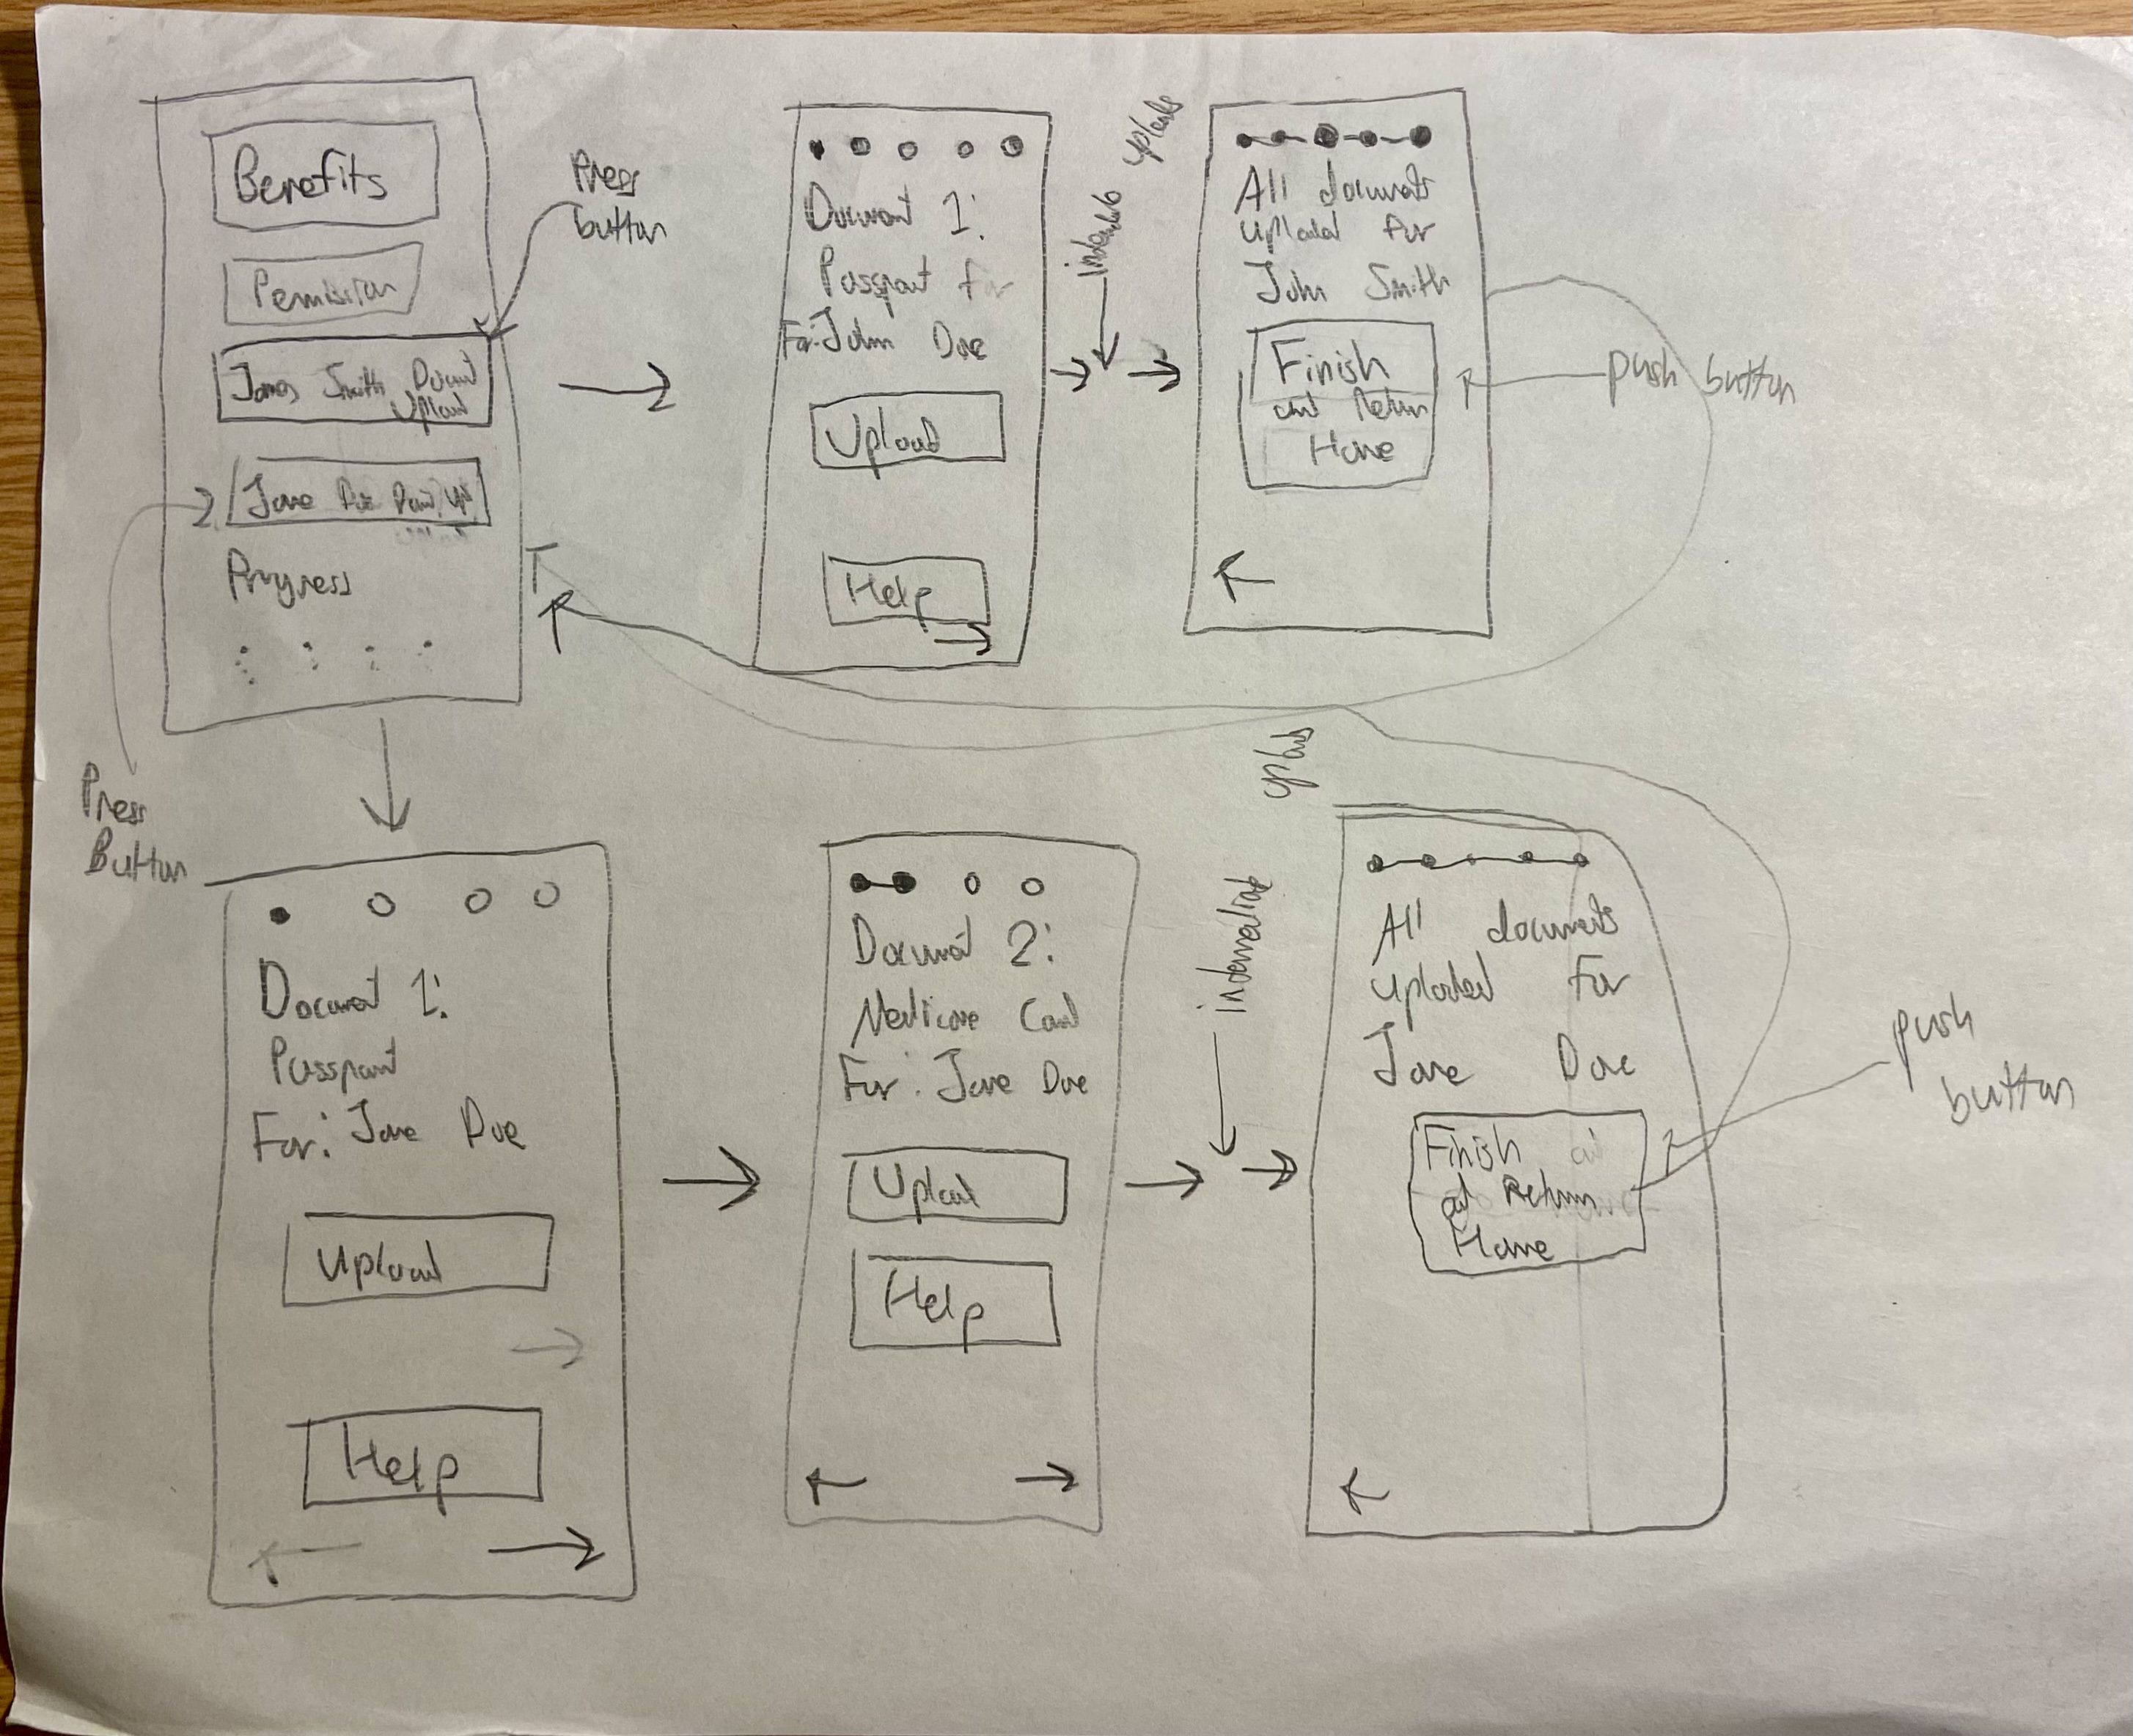 Benefits
Permission
James Smith Document
Upload
Jane Doe
Progress
Press
button
Press
Button
Document 1:
Passport for
For: John Doe
Upload
Help
intermediate
uploads
All documents
uploaded for
John Smith
Finish
and Return
Home
push button
Document 1:
Passport
For: Jane Doe
Upload
Help
Document 2:
Medicare Card
For: Jane Doe
Upload
Help
intermediate
uploads
All documents
uploaded for
Jane Doe
Finish
and Return
Home
push
button